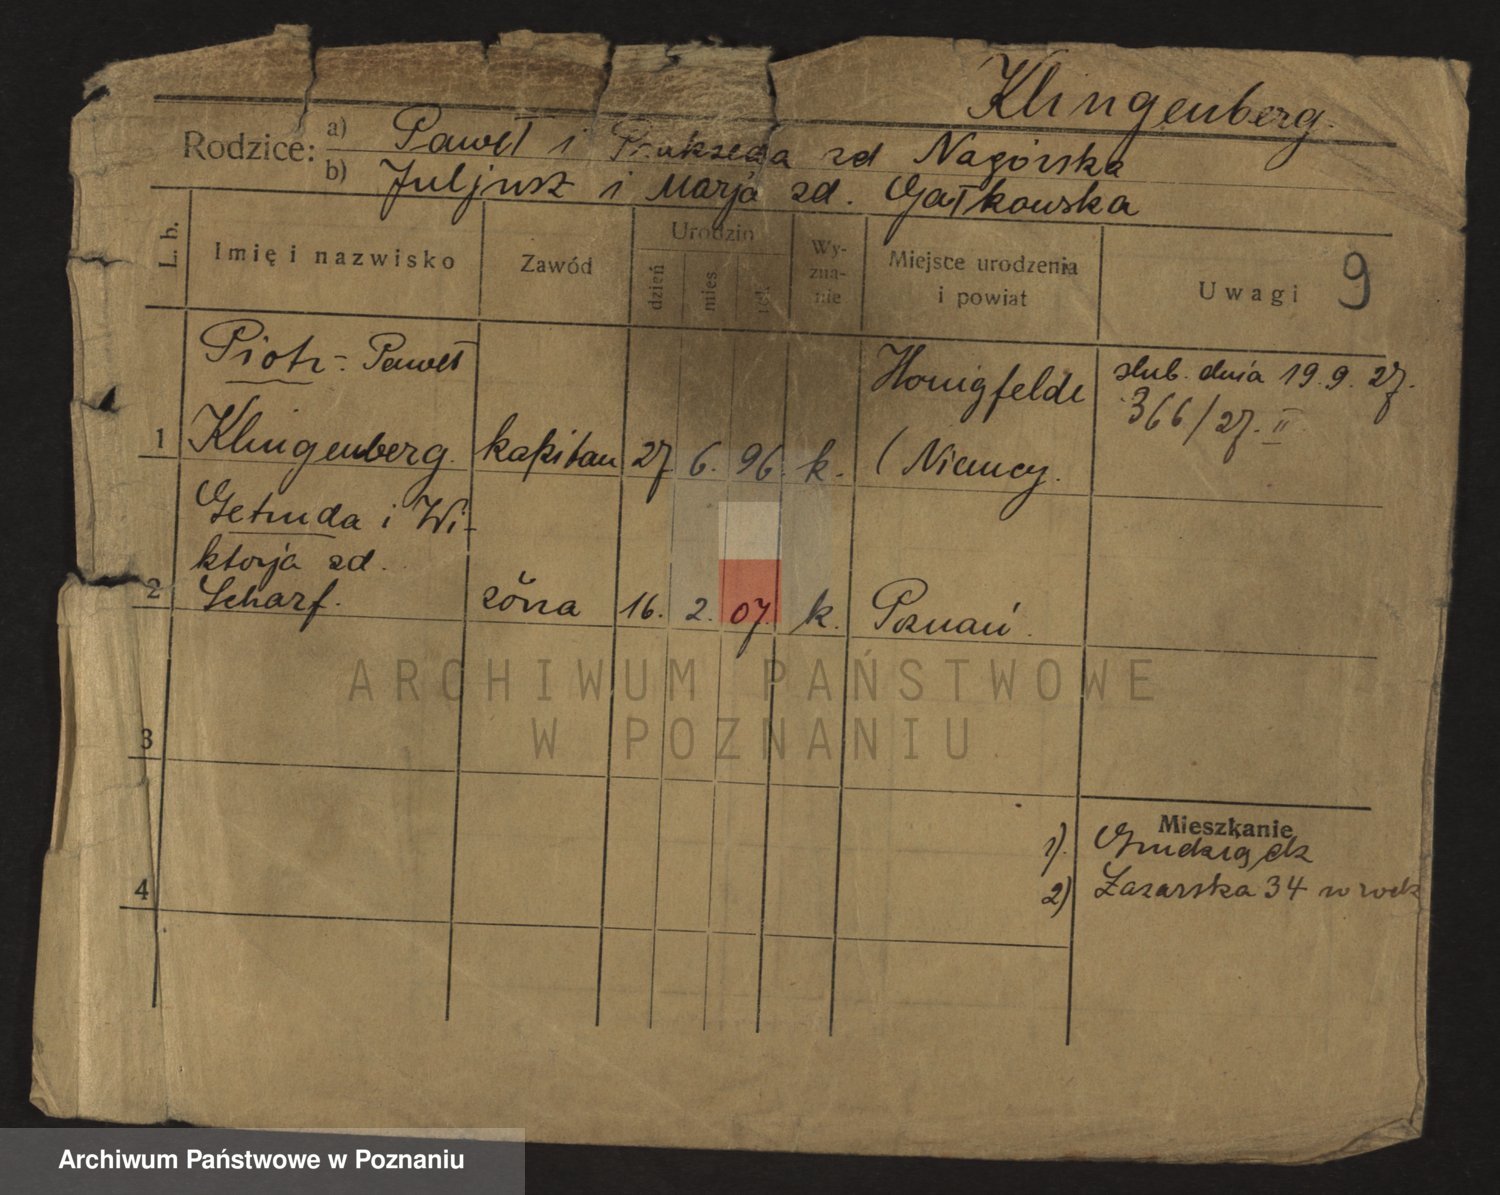 Klingenberg.
Rodzice: a) Paweł i Prakseda zd Nagórska
b) Juljusz i Marja zd. Gatkowska
L. b. Imię i nazwisko Zawód Urodzin dzień mies rok Wy-zna-nie Miejsce urodzenia i powiat Uwagi 9
Piotr - Paweł Honigfelde slub. dnia 19.9.27.
366/27. II
1 Klingenberg. kapitan 27 6. 96. k. (Niemcy.
Getruda i Wi-
ktorja zd.
2 Scharf. żona 16. 2. 07. k. Poznań.
ARCHIWUM PAŃSTWOWE
W POZNANIU
3
Mieszkanie
1). Grudziądz
4 2) Łazarska 34
Archiwum Państwowe w Poznaniu